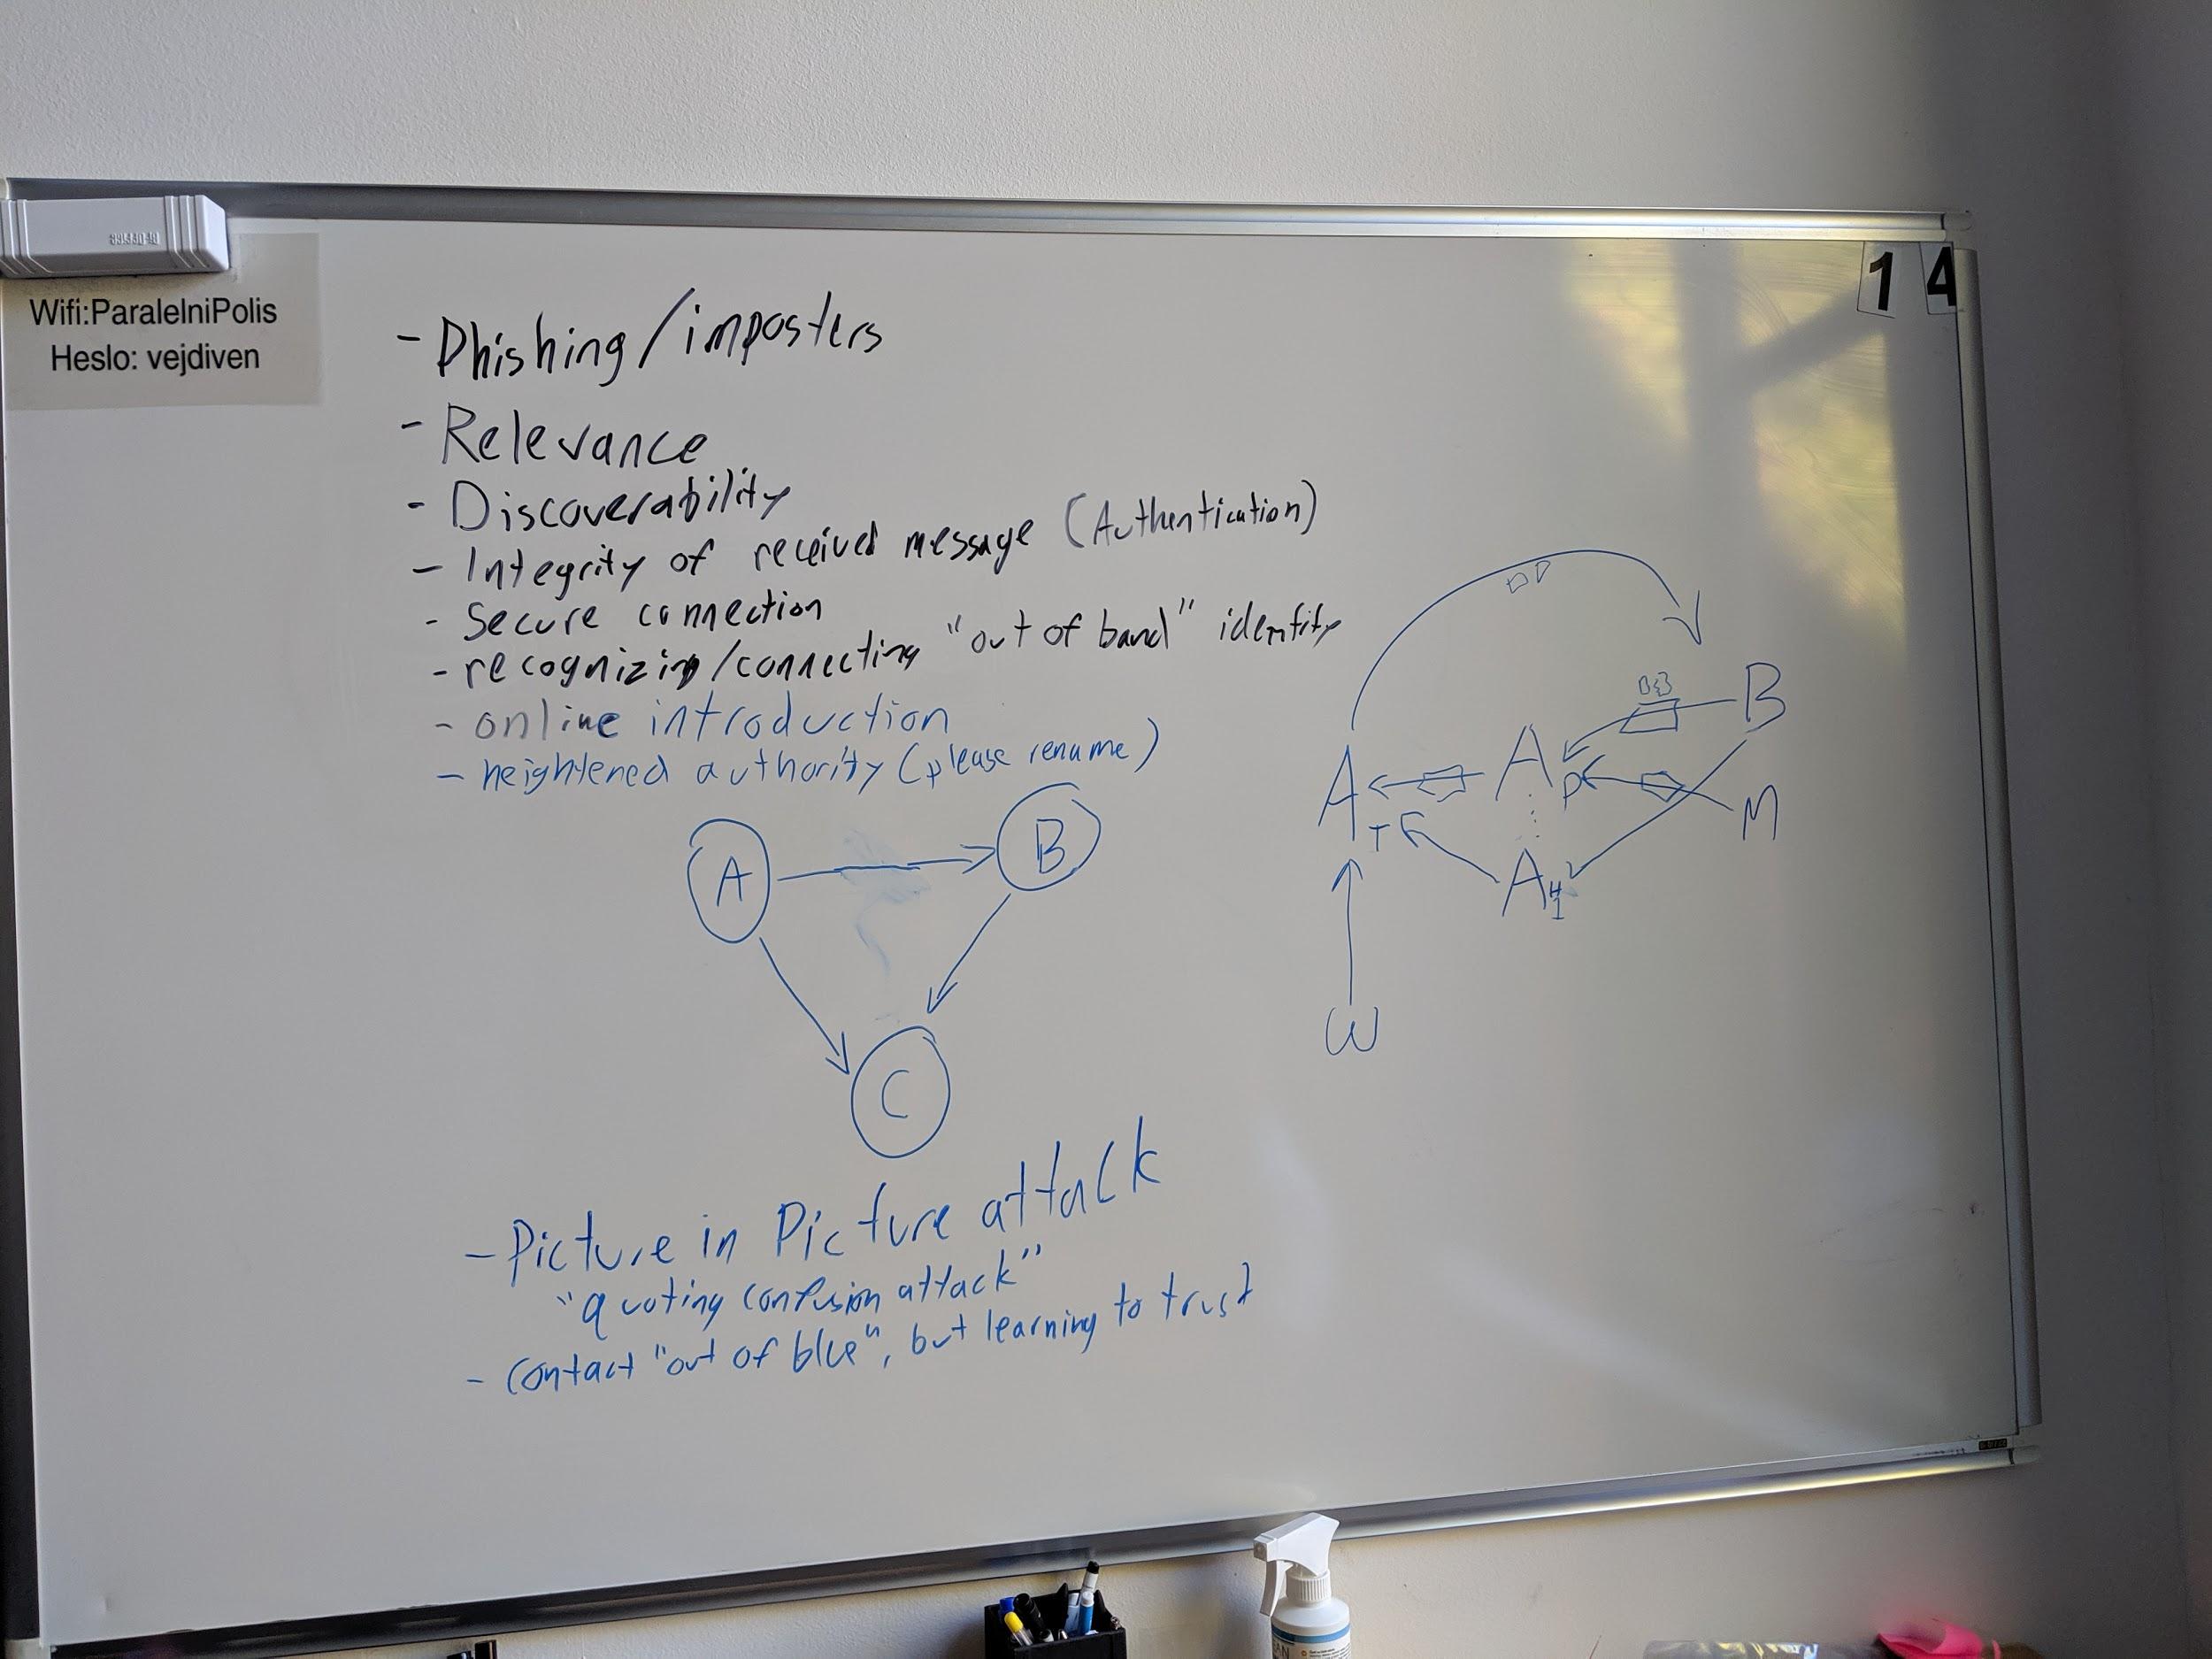 Wifi:ParalelniPolis
Heslo: vejdiven
14
- Phishing/imposters
- Relevance
- Discoverability
- Integrity of received message (Authentication)
- Secure connection
- recognizing/connecting "out of band" identity
- online introduction
- heightened authority (please rename)
A
B
C
B
A
A
P
T
M
A
W
- Picture in Picture attack
"quoting confusion attack"
- contact "out of blue", but learning to trust